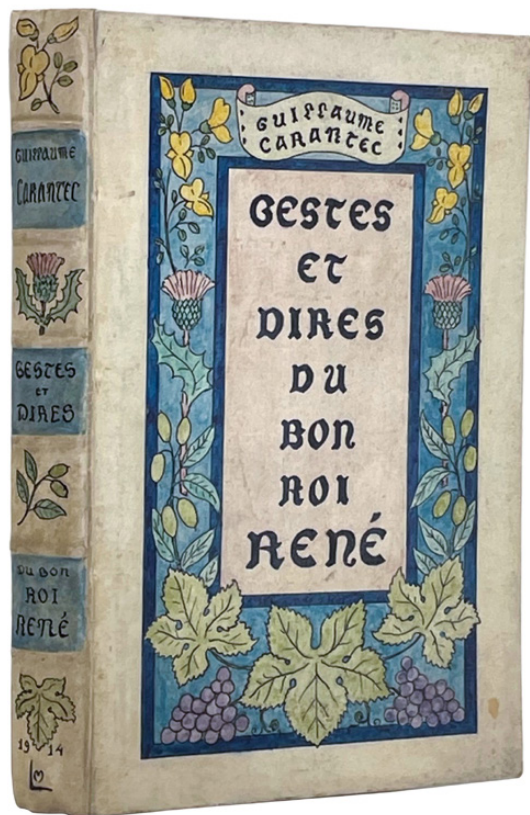 GUILLAUME
CARANTEC
GESTES
ET
DIRES
DU BON
ROI
RENÉ
1914
GUILLAUME
CARANTEC
GESTES
ET
DIRES
DU
BON
ROI
RENÉ